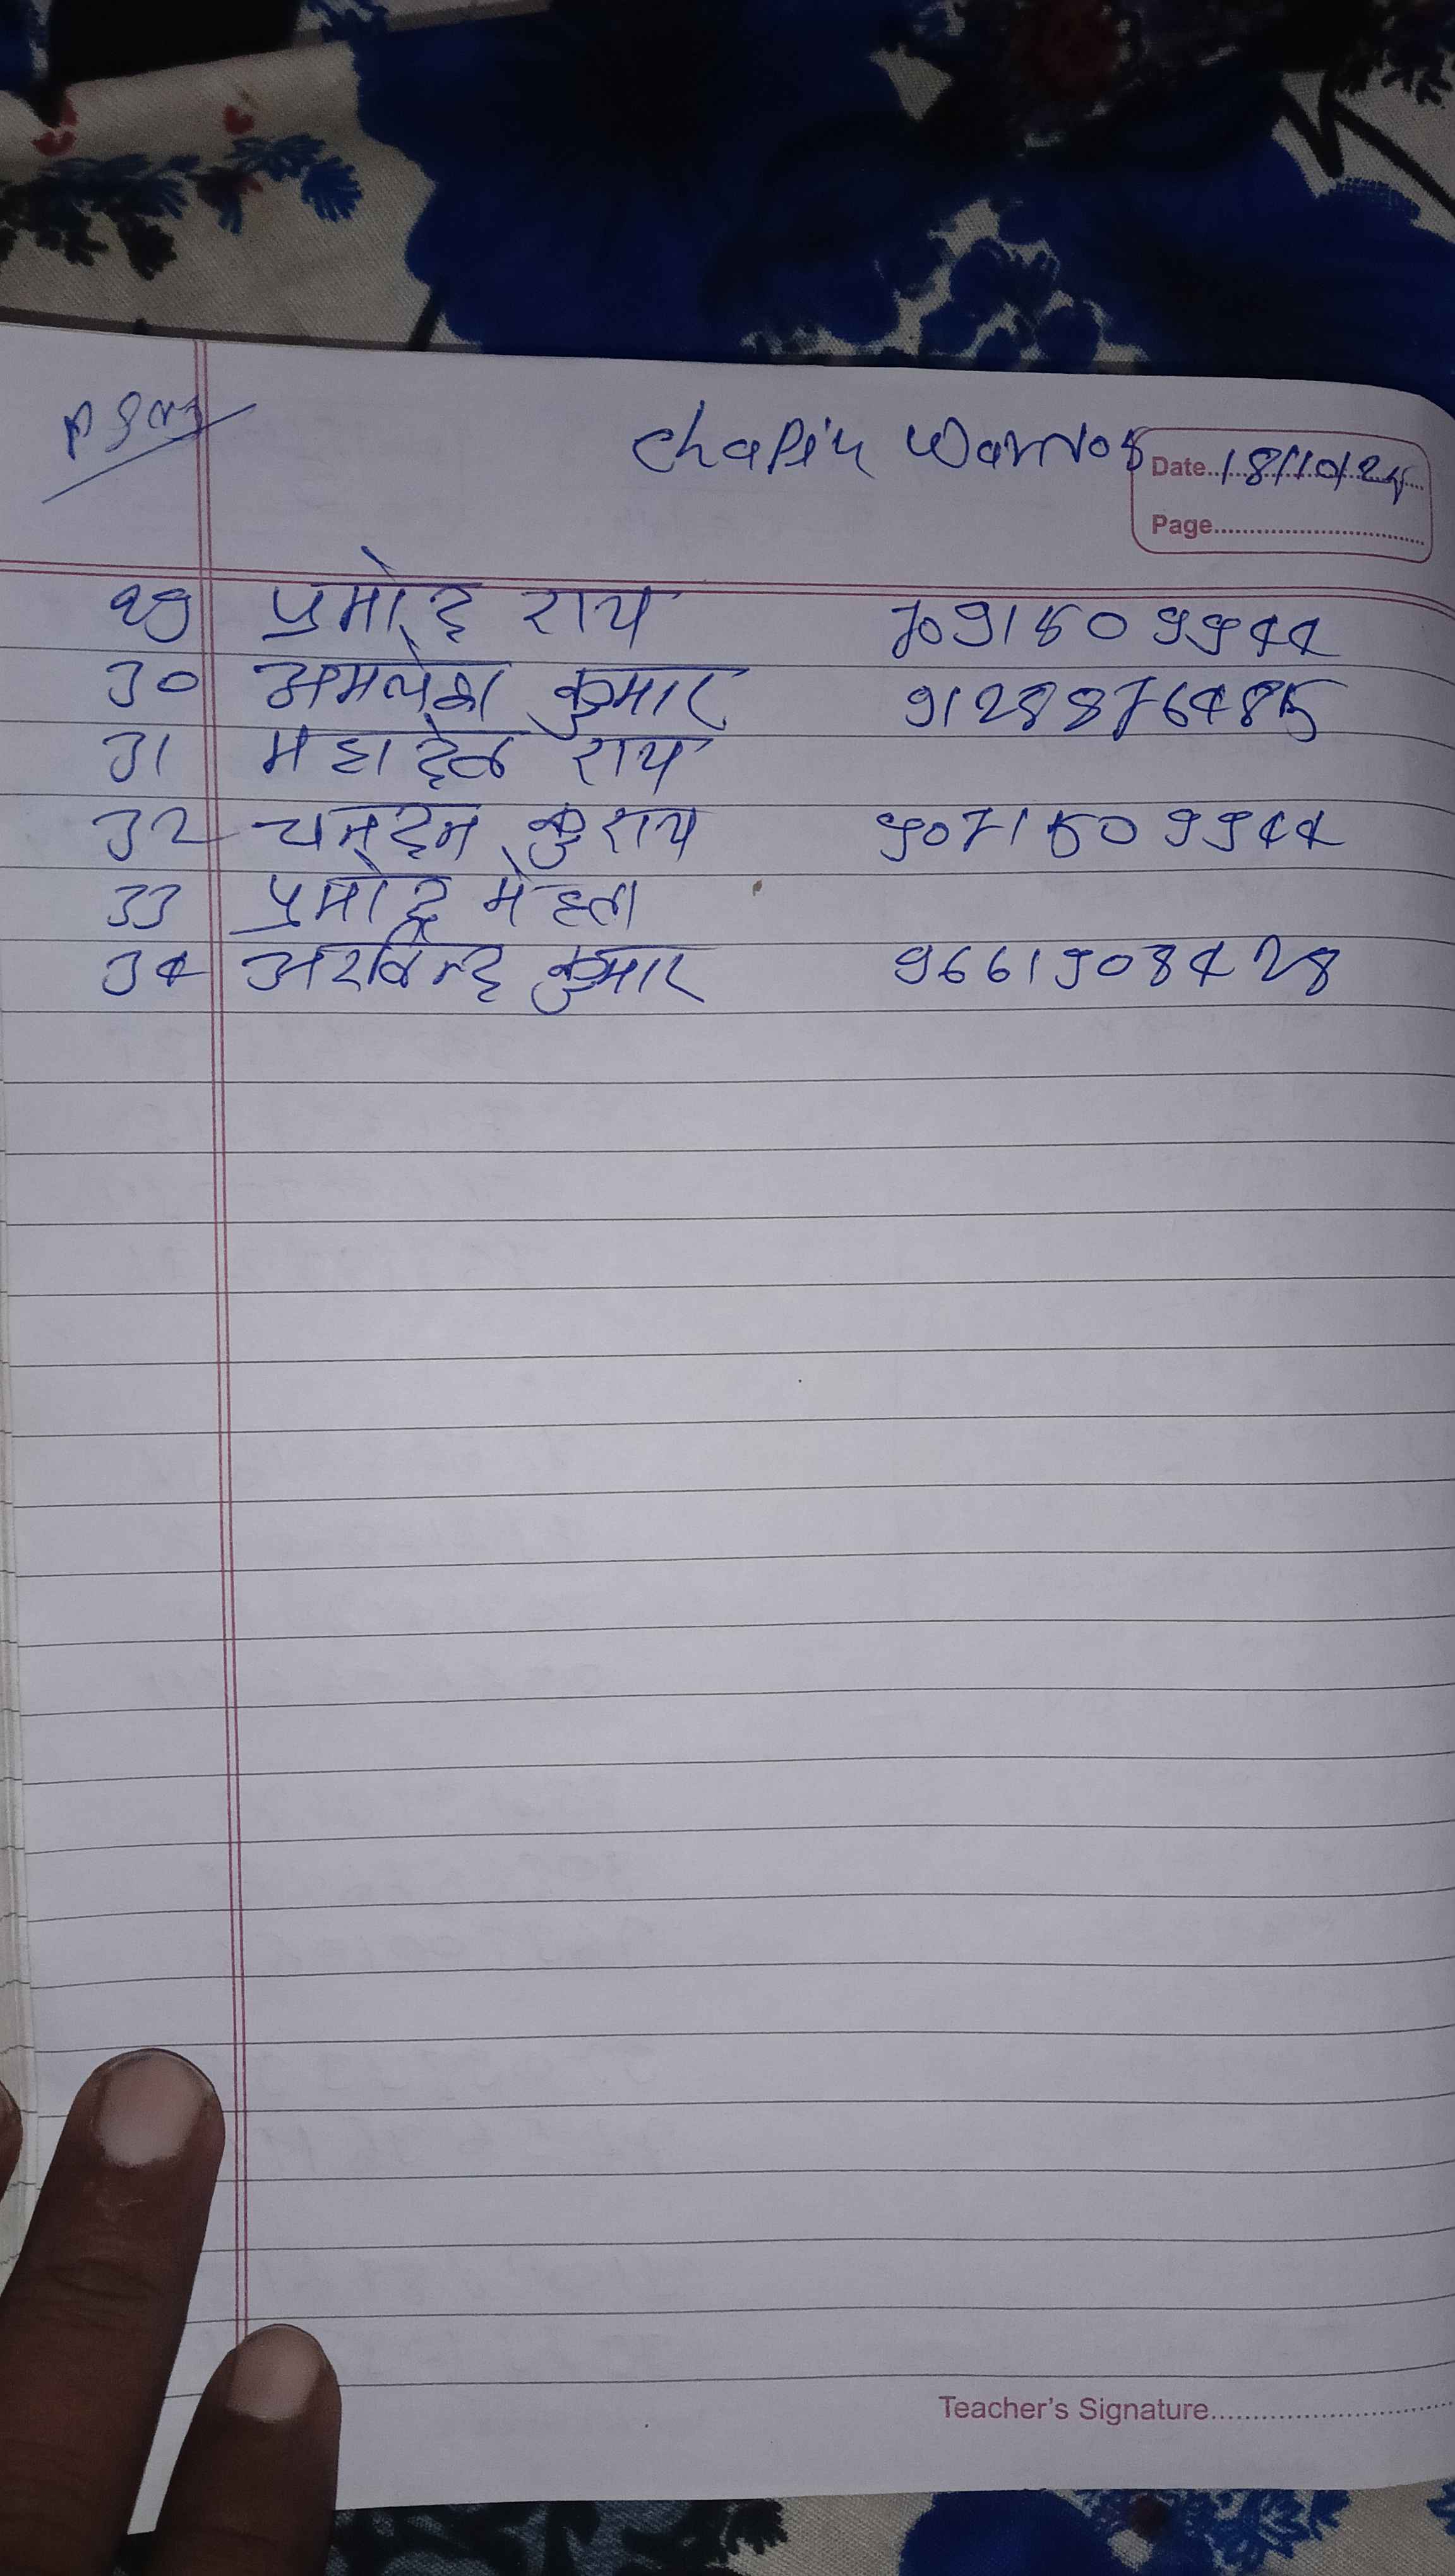 Chapin Warrior
Date 18/10/24
Page
29 प्रमोद राय 7091509944
30 अमलेश कुमार 9128876485
31 महादेव राय
32 चन्दन कु राय 9071509944
33 प्रमोद मेहता
34 अरविन्द कुमार 9661908428
Teacher's Signature